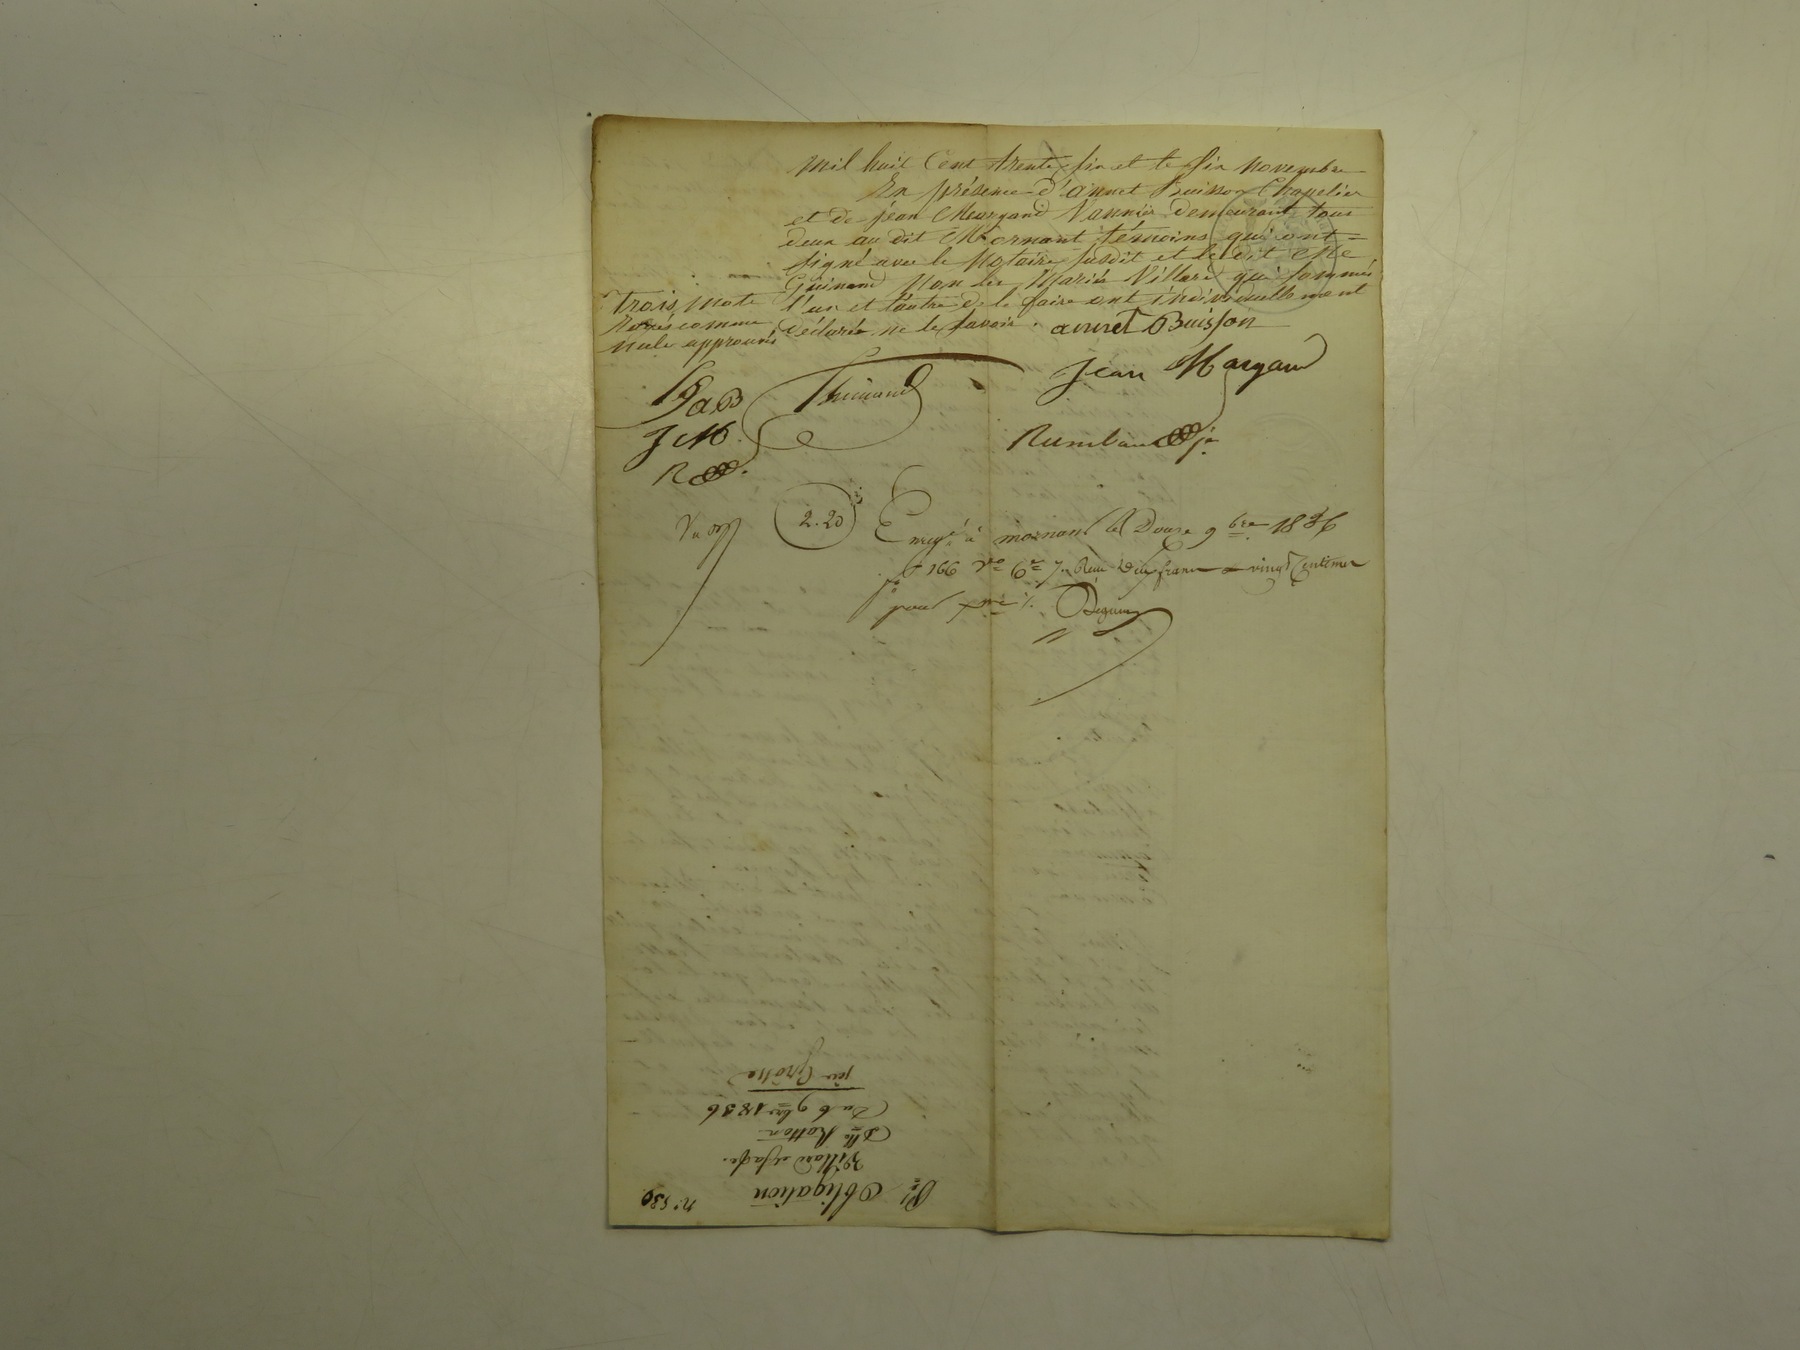 mil huit Cent trente six et le six novembre
En présence d'annet Buisson Chapelier
et de jean Margand Vannier demeurant tous
deux au dit Mornant, témoins qui ont
signé avec le Notaire susdit et le dit Me
Guinand Non les Mariés Villard qui sommés
l'un et l'autre de le faire ont individuellement
déclaré ne le savoir. annet Buisson
trois mots
Rayés comme
nuls approuvés
Jean Margand
G a.B
Guinand
J M.
R
Vu
2.20
Enreg.é à mornant le Douze 9bre 1836
fo 166 Vo Ce 7. Reçu deux francs vingt Centimes
pour
No 530
Obligation
Villard et sa fe.
Dlle Ratton
Du 6 9bre 1836
pér Grosse